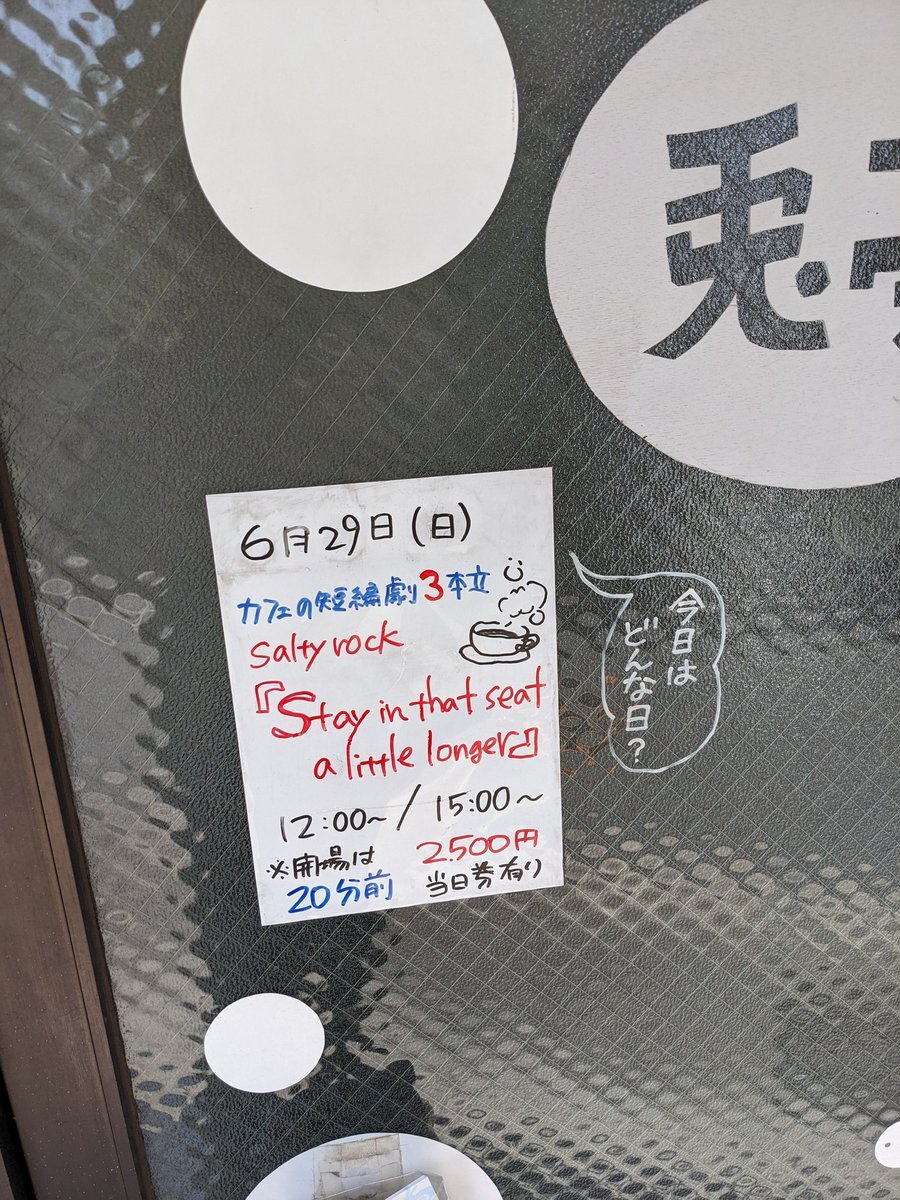 兎
6月29日(日)
カフェの短編劇3本立
salty rock
『Stay in that seat
a little longer』
12:00~/15:00~
※開場は
20分前
2.500円
当日券有り
今日は
どんな日?